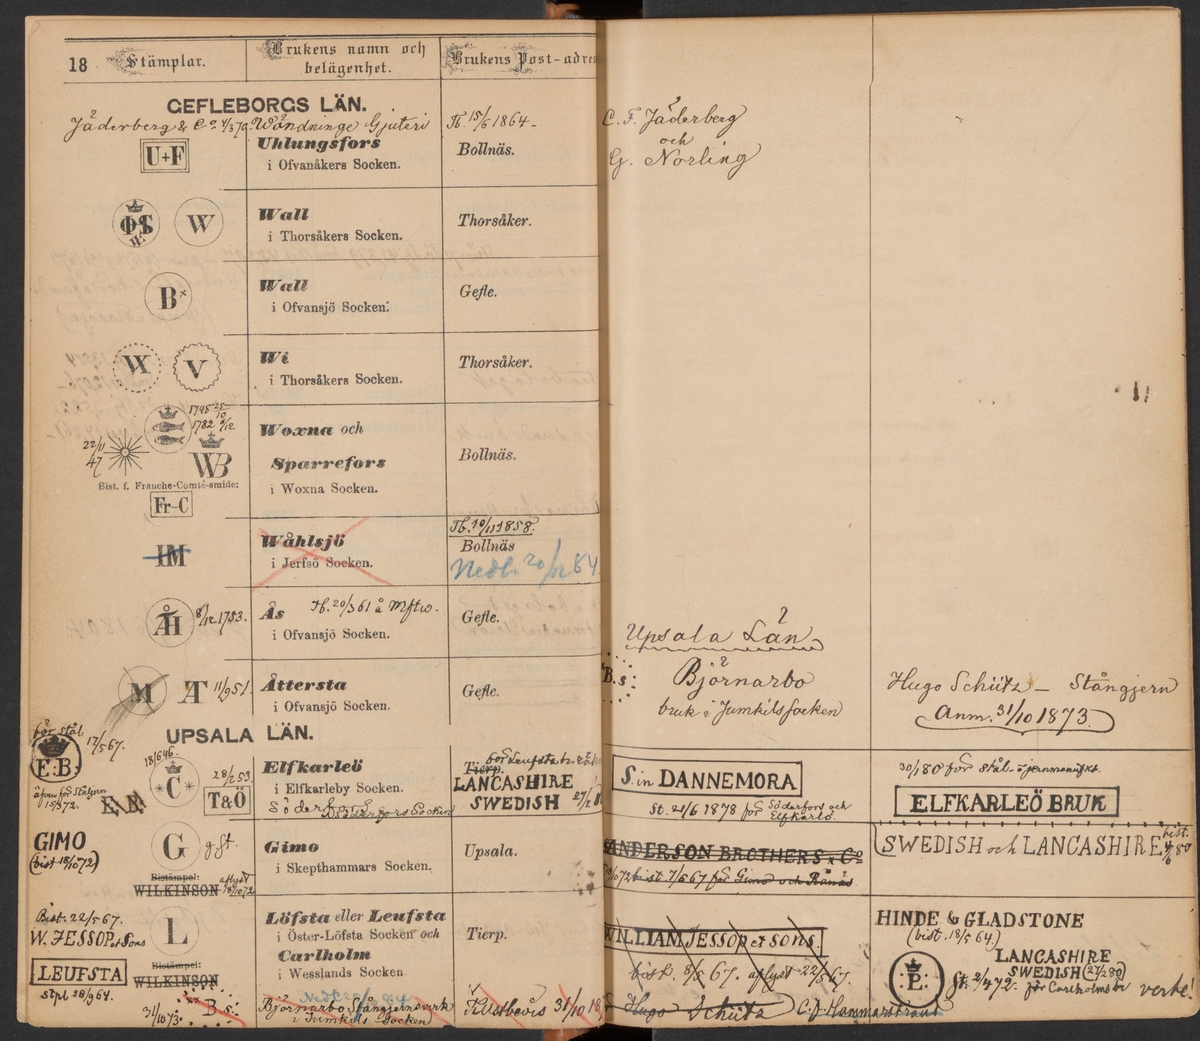 18 Stämplar. Brukens namn och belägenhet. Brukens Post-adres
GEFLEBORGS LÄN.
Jäderberg & Co 4/3 70. Wändninge Gjuteri Tb. 15/6 1864 C. F. Jäderberg
och
G. Norling
U+F Uhlungsfors Bollnäs.
i Ofvanåkers Socken.
W Wall Thorsåker.
i Thorsåkers Socken.
B× Wall Gefle.
i Ofvansjö Socken.
W V Wi Thorsåker.
i Thorsåkers Socken.
1745 25/10
1782 9/12
22/11 47
WB
Woxna och
Sparrefors Bollnäs.
i Woxna Socken.
Bist. f. Franche-Comté-smide:
Fr-C
Tb. 10/11 1858.
IM Wåhlsjö Bollnäs
i Jerfsö Socken. Nedl. 20/12 84
ÅH 8/12 1753. Ås Tb. 20/3 61 å Mftw. Gefle.
i Ofvansjö Socken.
M ÅT 11/9 51. Åttersta Gefle.
i Ofvansjö Socken.
Upsala Län
B.s: Björnarbo
bruk i Jumkils socken
Hugo Schütz – Stångjern
Anm. 31/10 1873.
UPSALA LÄN.
för stål 17/5 67.
E.B.
äfven för Stångjern
15/3 72.
18/6 46.
*C* 28/2 53.
T&Ö
Elfkarleö Tierp.
i Elfkarleby Socken.
Söderfors
Söderfors Socken
LANCASHIRE
SWEDISH 27/2 80
S. in DANNEMORA
St. 21/6 1878 för Söderfors och
Elfkarlö.
30/1 80 för stål-
ELFKARLEÖ BRUK
GIMO
(bist 18/10 72)
G gst. Gimo Upsala.
i Skepthammars Socken.
Bistämpel:
WILKINSON aflyst 18/10 72
SANDERSON BROTHERS & Co
bist. 7/5 67 för Gimo och Rånäs
SWEDISH och LANCASHIRE bist. 4/6 80
Bist. 22/5 67.
W. JESSOP et Sons
L Löfsta eller Leufsta
i Öster-Löfsta Socken och Tierp.
Carlholm
i Wesslands Socken
LEUFSTA
Stpl 28/9 64.
Bistämpel:
WILKINSON
WILLIAM JESSOP et SONS.
bist. 8/5 67. aflyst 22/5 67.
HINDE & GLADSTONE
(bist. 18/5 64)
LANCASHIRE
SWEDISH (27/2 80)
P. St. 2/4 72. för Carlholms br verke!
31/10 73. B s: Björnarbo Stångjernsverk
i Jumkils Socken
Tillstbevis 31/10 18
Hugo Schütz C. J. Hammarstrand